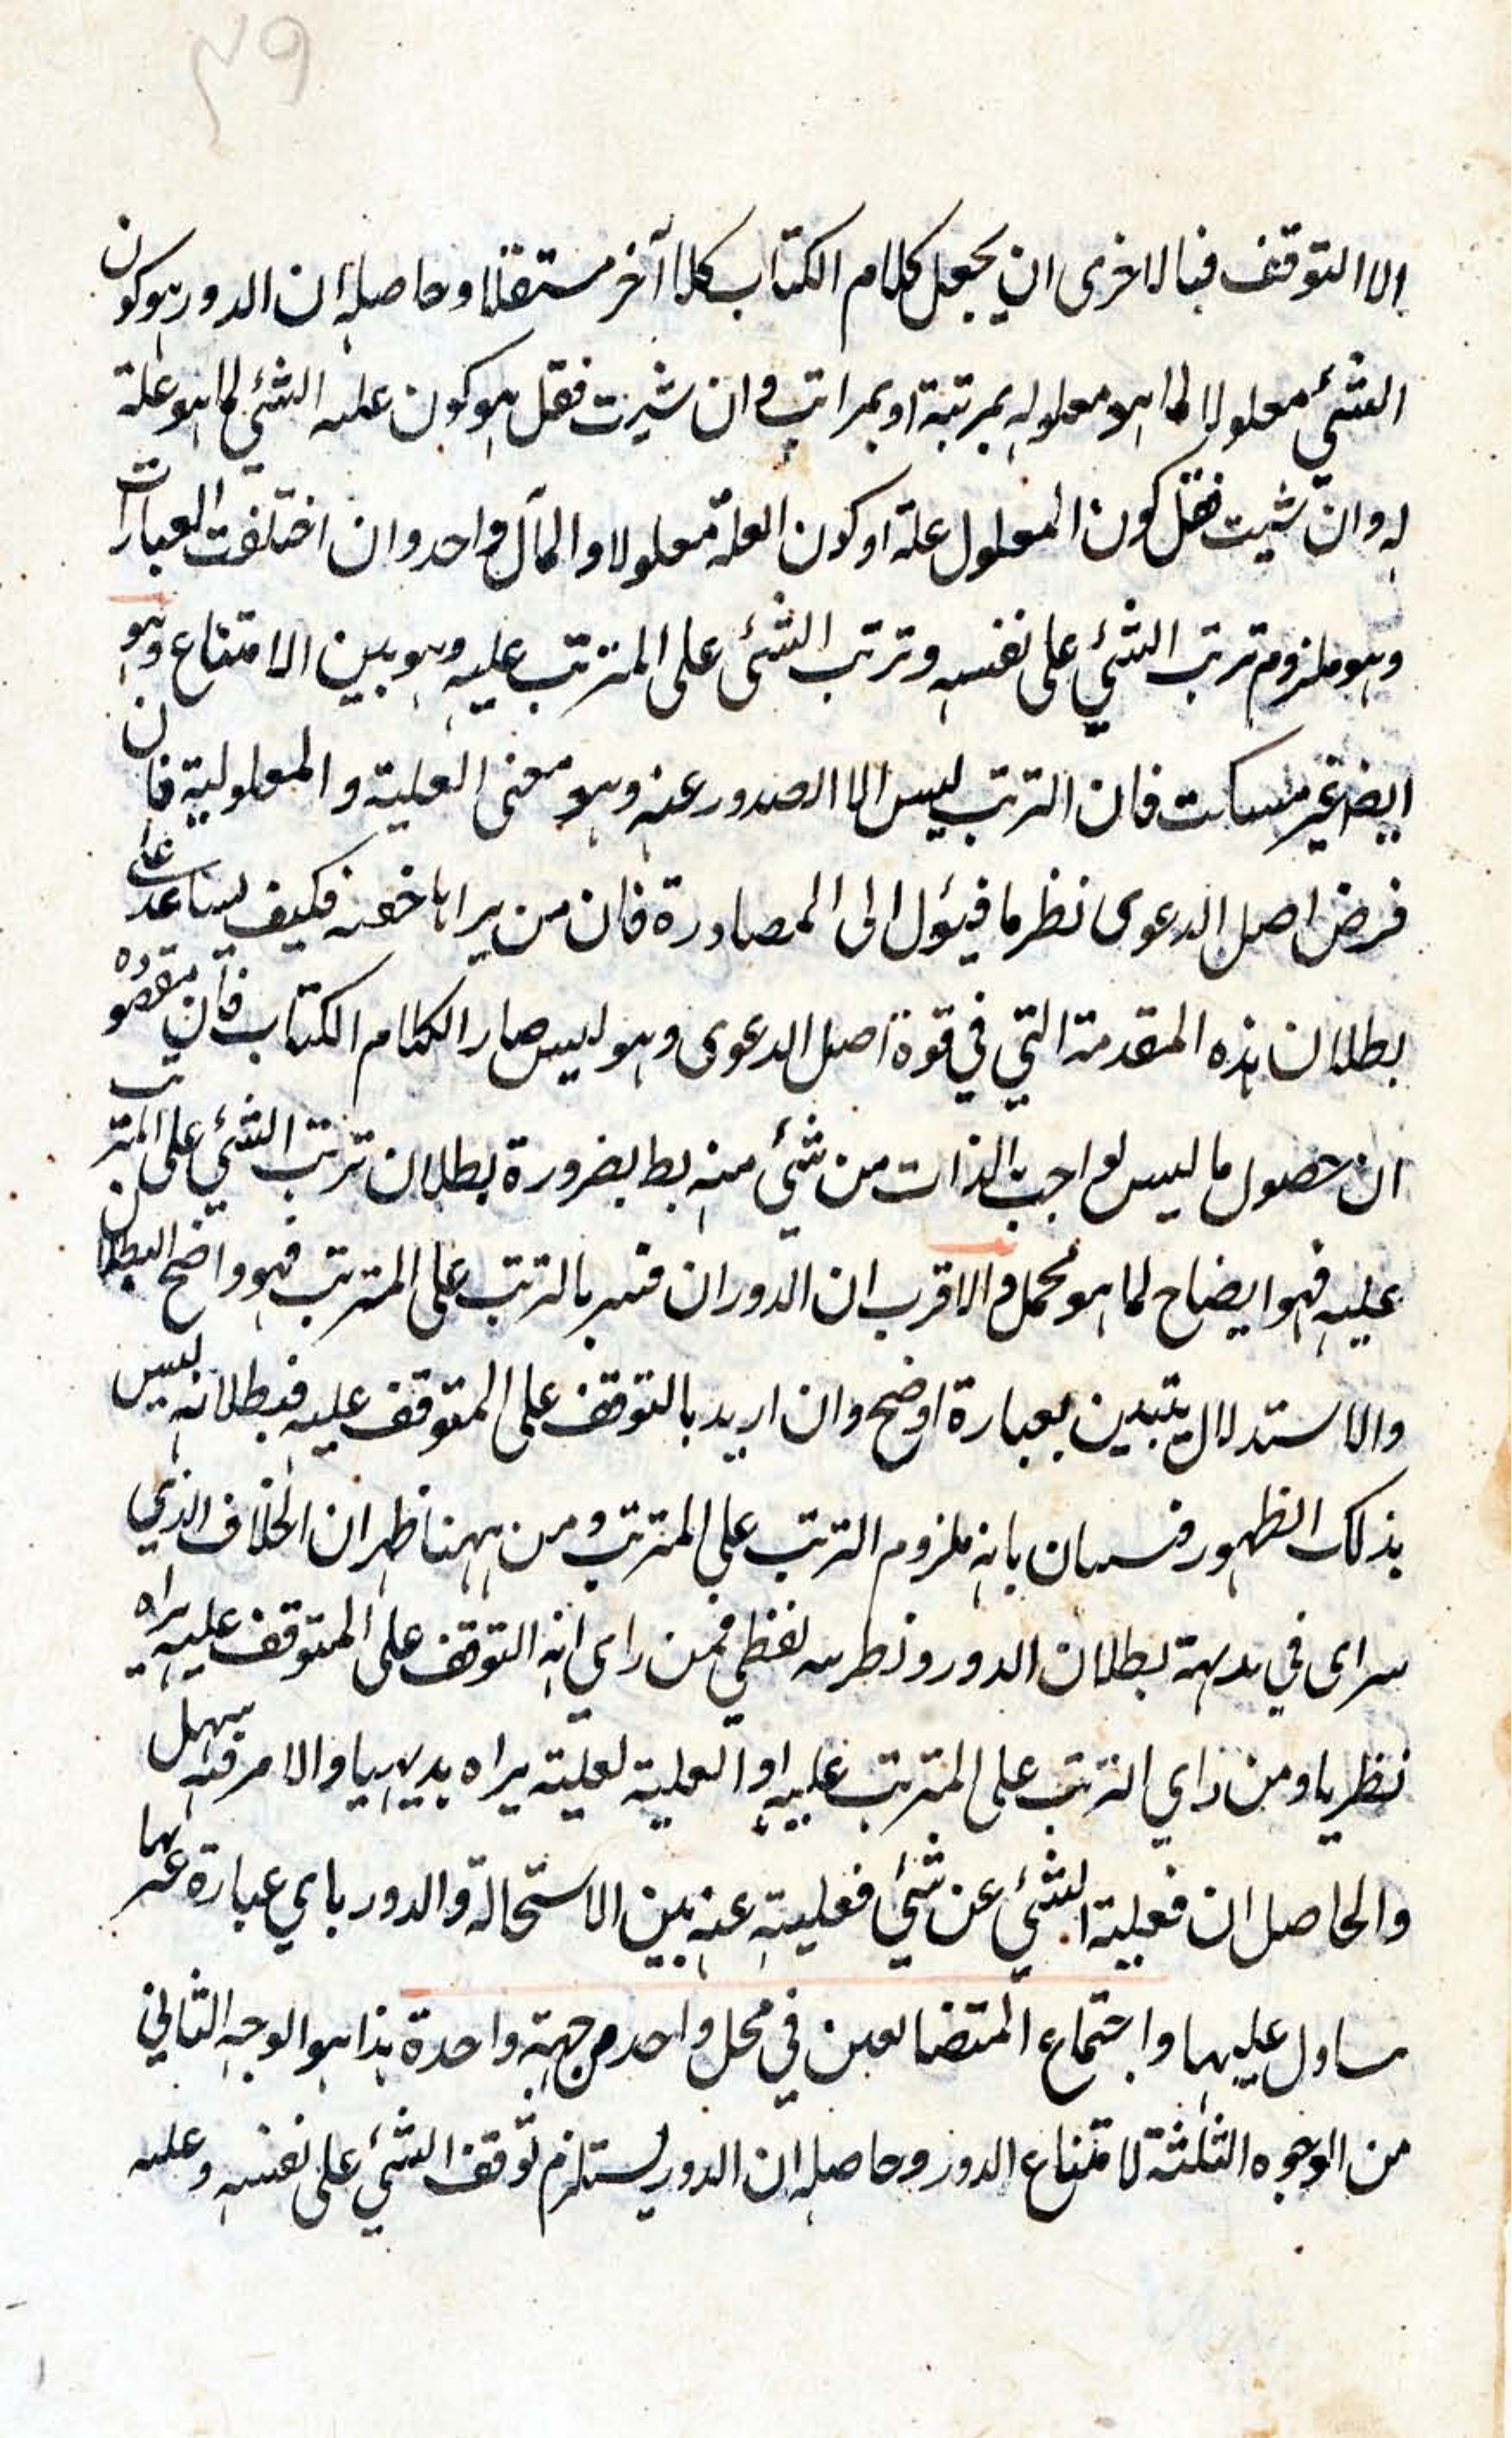 ٤٩
الا التوقف فبالاخرى ان يجعل كلام الكتاب كلاما آخر مستقلا وحاصله ان الدور هو كون
الشئ معلولا لما هو معلوله بمرتبة او بمراتب وان شئت فقل هو كون علة الشئ لما هو علة
له وان شيت فقل كون المعلول علة او كون العلة معلولا والمآل واحد وان اختلفت العبارات
وهو ملزوم ترتب الشئ على نفسه وترتب الشئ على المترتب عليه وهو بين الامتناع وهو
ايضا غير مسكت فان الترتب ليس الا الصدور عنه وهو معنى العلية والمعلولية فان
فرض اصل الدعوى نظريا فيئول الى المصادرة فان من يراها خفية فكيف يساعد على
بطلان هذه المقدمة التي في قوة اصل الدعوى وهو ليس صار الكلام الكتاب فان مقصوده
ان حصول ما ليس لواجب الذات من شئ منه بط بضرورة بطلان ترتب الشئ على المترتب
عليه فهو ايضاح لما هو مجمل والاقرب ان الدور ان فسر بالترتب على المترتب فهو واضح البطلان
والاستدلال يتبين بعبارة اوضح وان اريد بالتوقف على المتوقف عليه فبطلانه ليس
بذلك الظهور فيبان بانه ملزوم الترتب على المترتب ومن ههنا ظهر ان الخلاف الذي
يتراى في بداهة بطلان الدور ونظريته لفظي فمن راي انه التوقف على المتوقف عليه يراه
نظريا ومن راي الترتب على المترتب عليه او العلية لعليته يراه بديهيا والامر فيه سهل
والحاصل ان فعلية الشئ عن شئ فعليته عنه بين الاستحالة والدور باي عبارة عنها
يأول عليها واجتماع المتضايفين في محل واحد من جهة واحدة هذا هو الوجه الثاني
من الوجوه الثلثة لامتناع الدور وحاصله ان الدور يستلزم توقف الشئ على نفسه وعليه